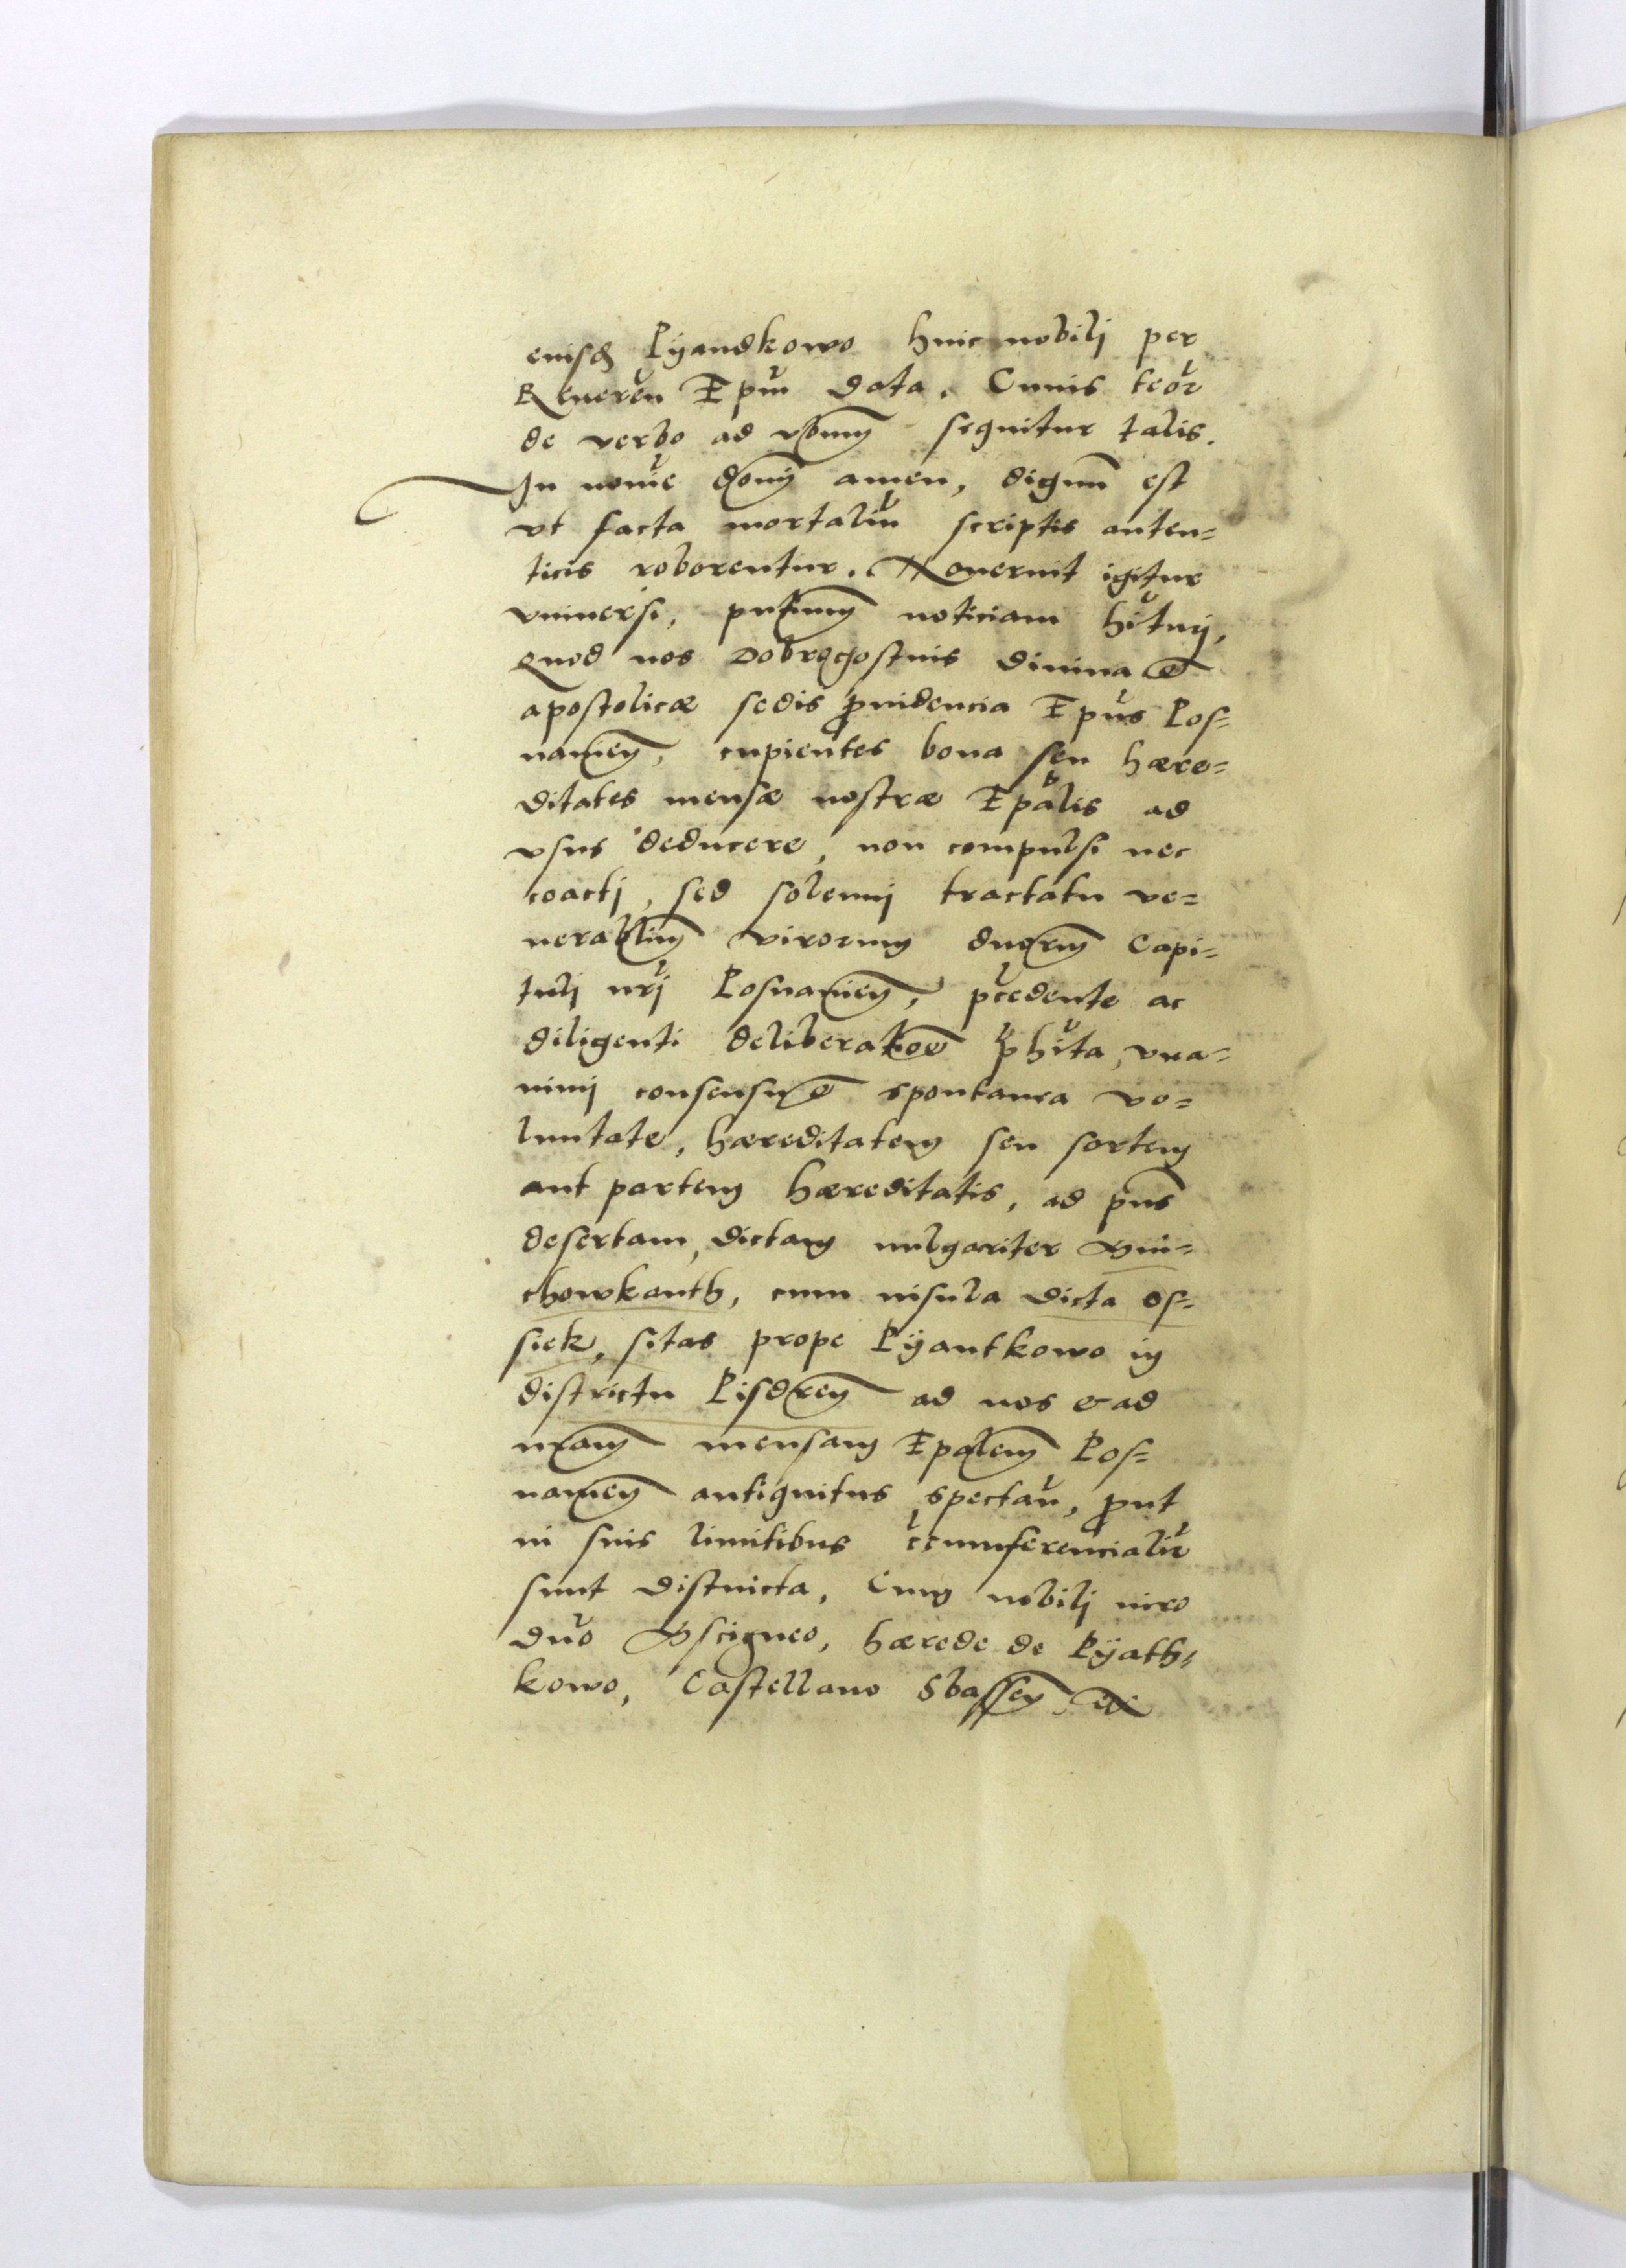 eiusdem Pyandkowo huic nobilj per
Reueren Epm data. Cuius teor
de verbo ad vbum sequitur talis.
In noie domj amen, dignum est
vt facta mortaliu scriptis auten=
ticis roborentur. Nouerint igitur
vniuersi, pntium noticiam hiturj,
Quod nos Dobrogostius diuina et
apostolicæ sedis prouidencia Epus Pos=
naniens, cupientes bona seu hære=
ditates mensæ nostræ Epalis ad
vsus deducere, non compulsi nec
coactj, sed solennj tractatu ve=
nerabilium virorum dnorum Capi=
tulj nrj Posnaniens, præcedente ac
diligenti deliberatioe præhita, vna=
nimj consensu et spontanea vo=
luntate, hæreditatem seu sortem
aut partem hæreditatis, ad pns
desertam, dictam uulgariter
chowkanth, cum insula dicta Os=
siek, sitas prope Pyantkowo in
districtu Pisdren ad nos & ad
nram mensam Epalem Pos=
naniens antiquitus spectan, prout
in suis limitibus circumferencialir
sunt distincta, Cum nobilj uiro
dno Msczigneo, hærede de Pyath=
kowo, Castellano Sbassen, etc